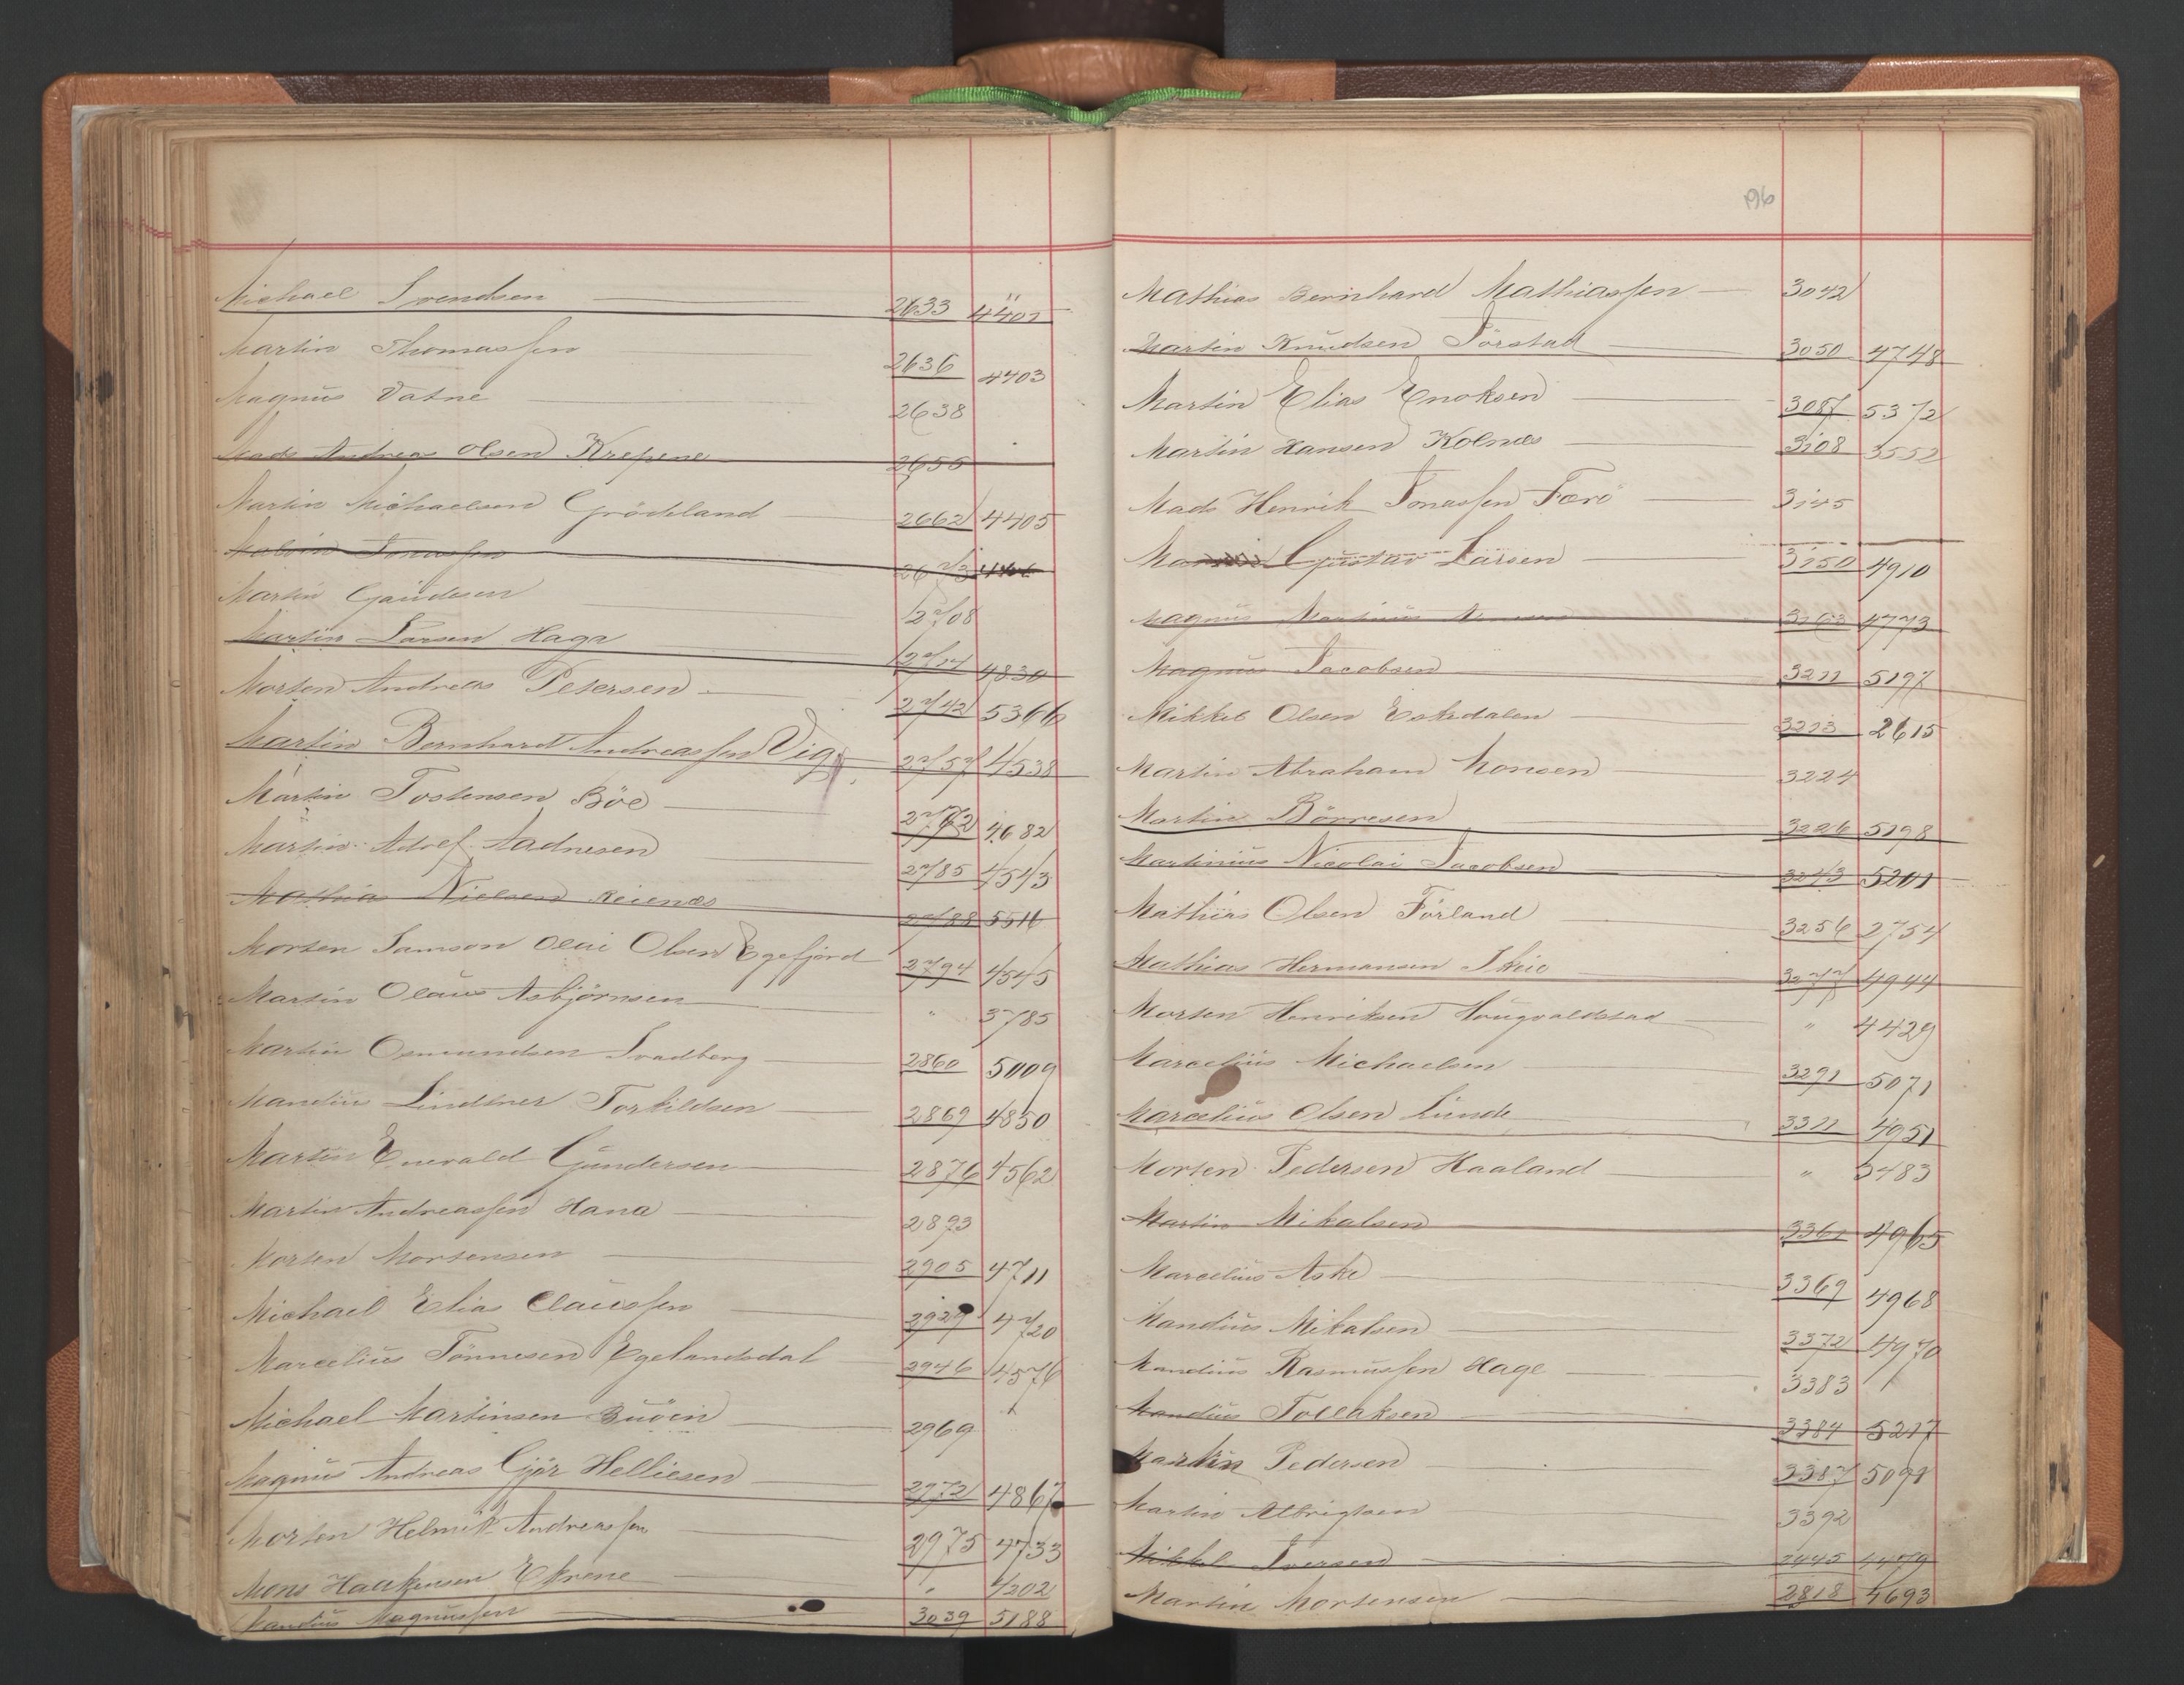 Michael Svendsen 2633 4401
Martin Thomassen 2636 4403
Magnus Vatne 2638
Mads Andreas Olsen Krepene 2655
Martin Michaelsen Grödeland 2662 4405
Jonassen 2673
Martin Gaudesen 2708
Martin Larsen Haga 4830
Morten Andreas Petersen 2742 5366
Martin Bernhard Andreassen Vig 2757 4538
Martin Tostensen Böe 2762 4682
Martin Adolf Aadnesen 2785 4543
Mathias Nielsen Reienæs 2788 5516
Morten Samson Olai Olsen Egefjord 2794 4545
Martin Olaus Asbjörnsen " 3785
Martin Osmundsen Svadberg 2860 5009
Mandius Lindtner Torkildsen 2869 4850
Martin Enevald Gundersen 2876 4562
Martin Andreassen Hana 2893
Morten Mortensen 2905 4711
Michael Elias Claussen 2929 4720
Marcelius Tönnesen Egelandsdal 2946 4576
Michael Martinsen Buöen 2969
Magnus Andreas Gjör Helliesen 2972 4867
Morten Helmik Andreassen 2975 4733
Mons Haakensen Ekrene " 4202
Mandius Magnussen 3039 5188
196
Mathias Bernhard Mathiassen 3042
Martin Knudsen Törstad 3050 4748
Martin Elias Enoksen 3087 5372
Martin Hansen Kolnæs 3108 3552
Mads Henrik Jonassen Færö 3145
Gustav Larsen 3150 4910
Magnus Martinius 3163 4773
Magnus Jacobsen 3211 5197
Mikkel Olsen Eskedalen 3223 2615
Martin Abraham Monsen 3224
Martin Börresen 3226 5198
Martinius Nicolai Jacobsen 3243 5201
Mathias Olsen Förland 3256 2754
Mathias Hermansen Skeie 3277 4944
Morten Henriksen Hougvaldstad " 4429
Marcelius Michaelsen 3291 5071
Marcelius Olsen Lunde 3311 4951
Morten Pedersen Haaland " 3483
Martin Mikalsen 3361 4965
Marcelius Aske 3369 4968
Mandius Mikalsen 3372 4970
Mandius Rasmussen Hage 3383
Mandius Tollaksen 3384 5217
Martin Pedersen 3387 5091
Martin Albrigtsen 3392
Mikkel Iversen 2445 4479
Martin Mortensen 2818 4693